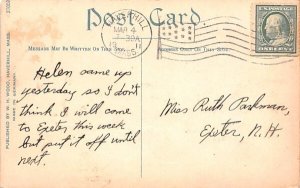 Post Card
HAVERHILL
MAR 4
30A
MASS.
MESSAGE MAY BE WRITTEN ON THIS SIDE
ADDRESS ONLY ON THIS SIDE
ONE CENT
PUBLISHED BY W. H. WOOD, HAVERHILL, MASS.
Helen came up
yesterday so I don't
think I will come
to Exeter this week
but put it off until
next.
Miss Ruth Parkman,
Exeter, N.H.